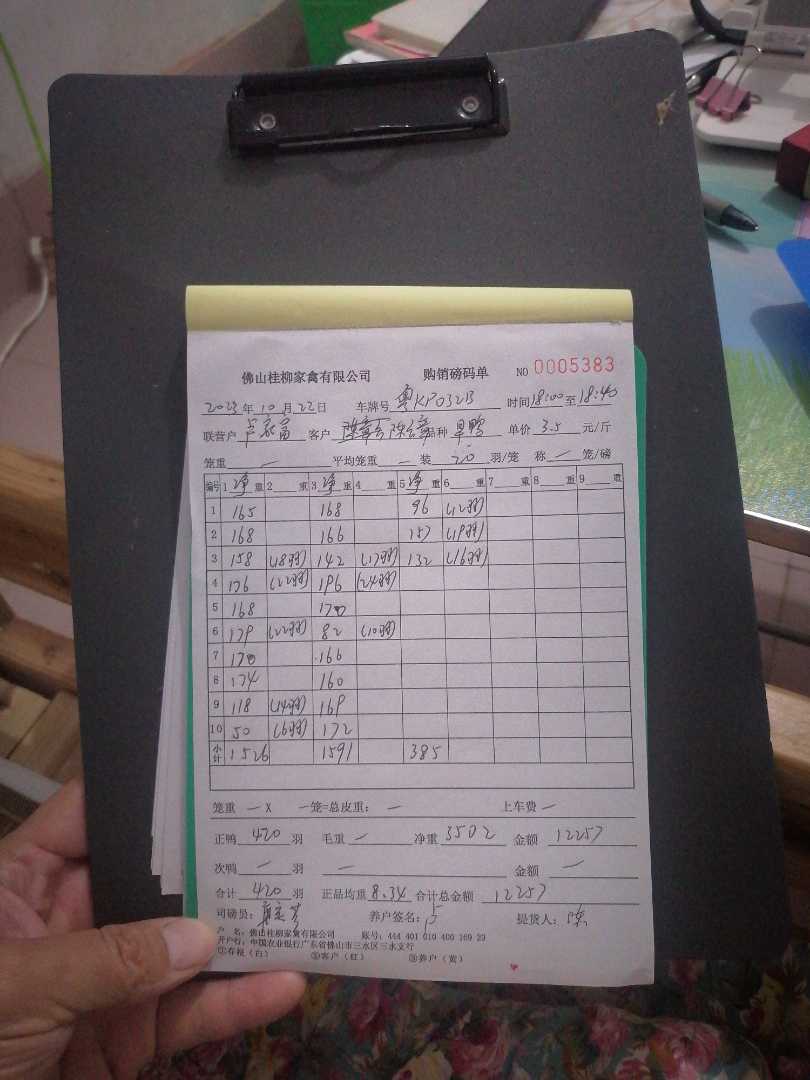 佛山桂柳家禽有限公司 购销磅码单 NO 0005383
2023年10月22日 车牌号 粤KP032B 时间18:00至18:40
联营户 客户 品种 旱鸭 单价 3.5 元/斤
笼重 — 平均笼重 — 装 20 羽/笼 称 — 笼/磅
编号 1 净 重 2 重 3 净 重 4 重 5 净 重 6 重 7 重 8 重 9 重
1 165 168 96 (12羽)
2 168 166 157 (19羽)
3 158 (18羽) 142 (17羽) 132 (16羽)
4 176 (22羽) 196 (24羽)
5 168 170
6 179 (22羽) 82 (10羽)
7 170 166
8 174 160
9 118 (14羽) 169
10 50 (6羽) 172
小计 1526 1591 385
笼重 — X —笼=总皮重: — 上车费 —
正鸭 420 羽 毛重 — 净重 3502 金额 12257
次鸭 — 羽 — 金额 —
合计 420 羽 正品均重 8.34 合计总金额 12257
司磅员: 养户签名: 提货人: 陈
户 名: 佛山桂柳家禽有限公司 账号: 444 401 010 400 169 29
开户行: 中国农业银行广东省佛山市三水区三水支行
①存根(白) ②客户(红) ③养户(黄)